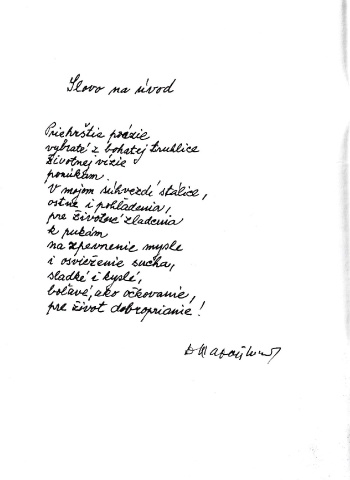 Slovo na úvod
Priehrštia poézie
vybraté z bohatej truhlice
životnej vízie
ponúkam.
V mojom súhvezdí stálice,
ostne i pohladenia,
pre životné zladenia
k pukám
na spevnenie mysle
i osvieženie sucha,
sladké i kyslé,
boľavé, ako očkovanie,
pre život dobroprianie!